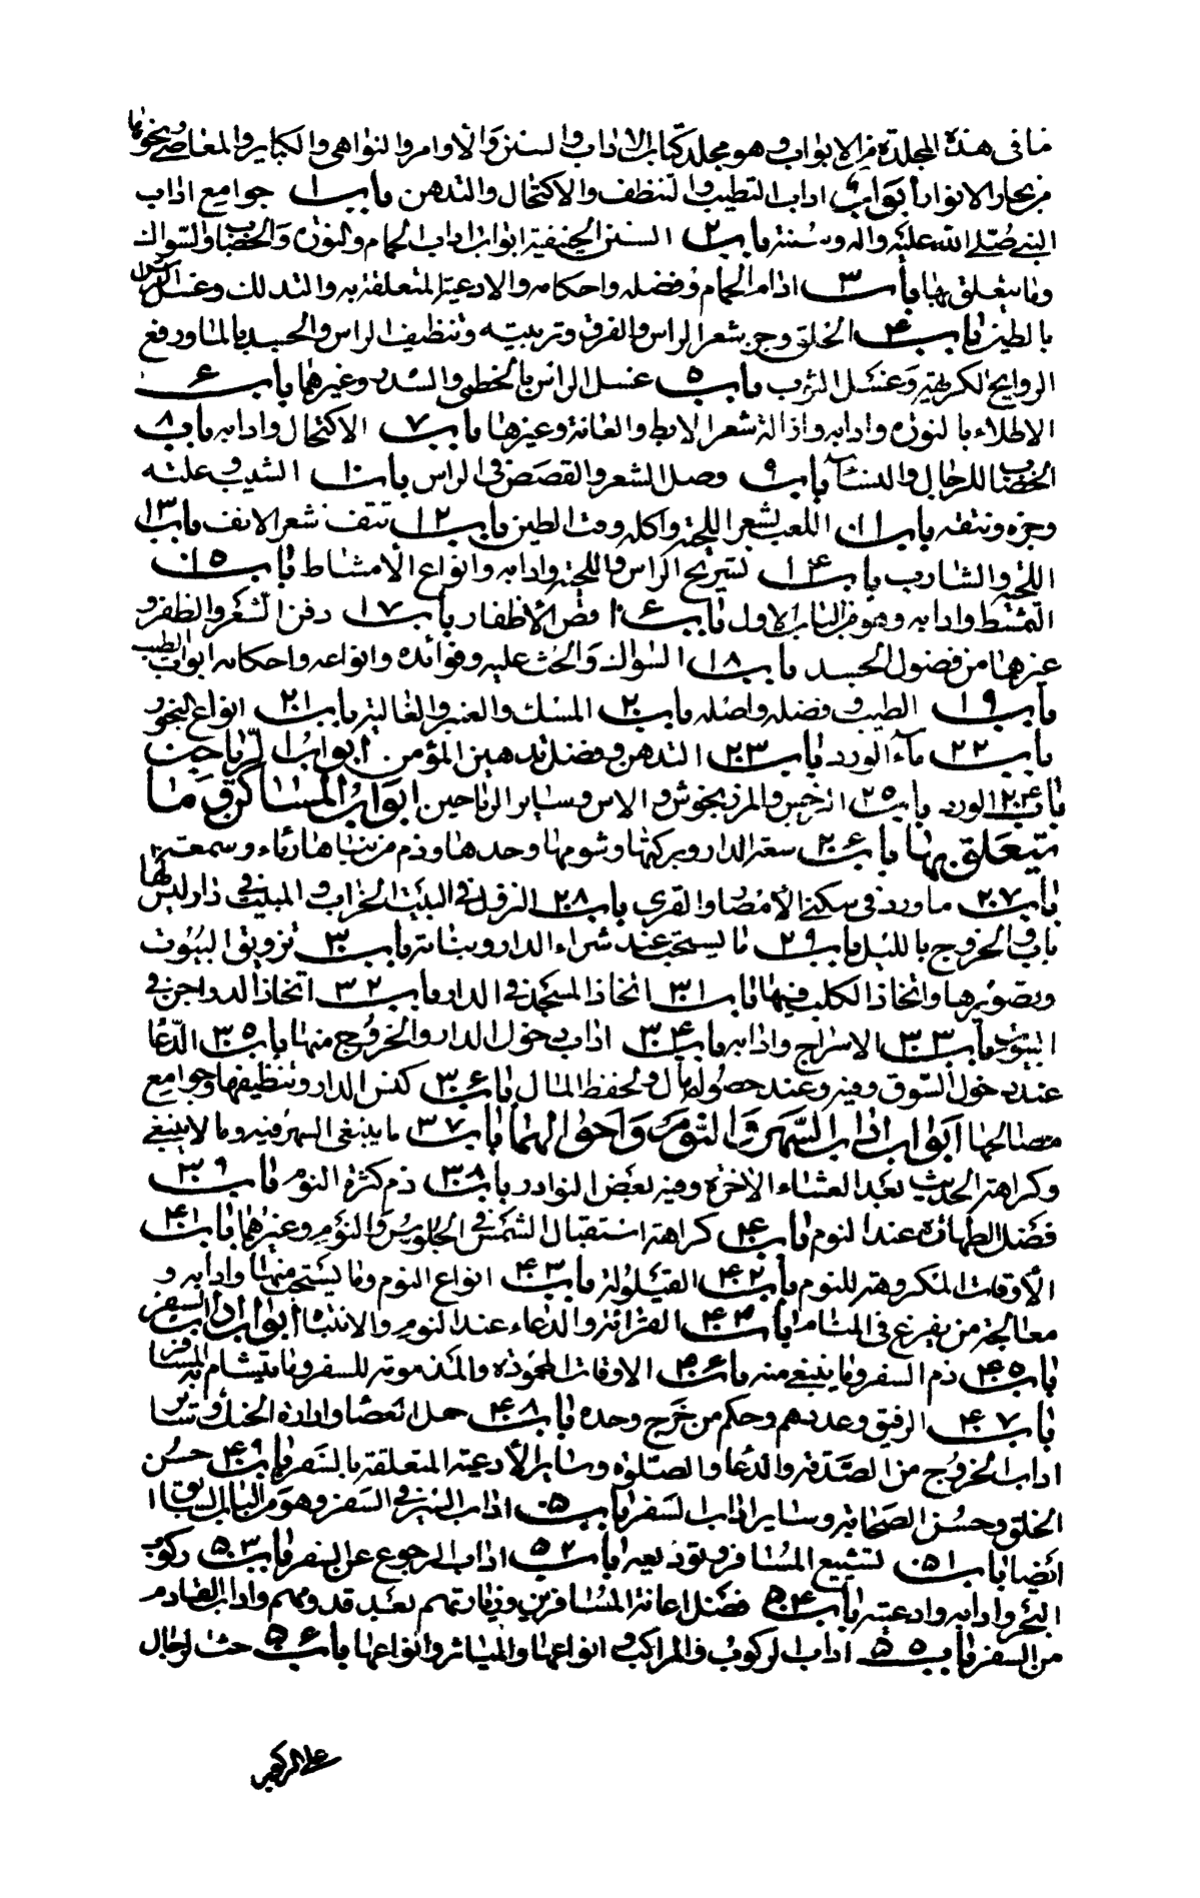 ما فى هذه المجلدة من الابواب وهو مجلد كتاب الاداب والسنن والأوامر والنواهى والكباير والمعاصى ونحوها
من بحار الانوار أبواب اداب التطيب والتنظف والاكتحال والتدهن باب ١ جوامع اداب
النبى صلى الله عليه واله وسننه باب ٢ السنن الحنيفية ابواب اداب الحمام والنورة والخضاب والسواك
وما يتعلق بها باب ٣ اداب الحمام وفضله واحكامه والادعية المتعلقة به والتدلك وغسل الراس
بالطين باب ۴ الحلق وجز شعر الراس والفرق وتربيته وتنظيف الراس والجسد بالماء ودفع
الروايح الكريهة وغسل الثوب باب ۵ غسل الراس بالخطمى والسدر وغيرهما باب ۶
الاطلاء بالنورة وادابه وازالة شعر الابط والعانة وغيرها باب ٧ الاكتحال وادابه باب ٨
الخضاب للرجال والنساء باب ٩ وصل الشعر والقصص فى الراس باب ١٠ الشيب وعلته
وجزه ونتفه باب ١١ اللعب بشعر اللحية واكله وفت الطين باب ١٢ نتف شعر الانف باب ١٣
اللحية والشارب باب ١۴ تسريح الراس واللحية وادابه وانواع الأمشاط باب ١۵
التمشط وادابه وهو من الباب الاول باب ١۶ قص الأظفار باب ١٧ دفن الشعر والظفر و
غيرهما من فضول الجسد باب ١٨ السواك والحث عليه وفوائده وانواعه واحكامه ابواب الطيب
باب ١٩ الطيب وفضله واصله باب ٢٠ المسك والعنبر والغالية باب ٢١ انواع البخور
باب ٢٢ ماء الورد باب ٢٣ التدهن وفضل تدهين المؤمن ابواب الرياحين
باب ٢۴ الورد باب ٢۵ النرجس والمرزنجوش والاس وساير الرياحين ابواب المساكن وما
يتعلق بها باب ٢۶ سعة الدار وبركتها وشومها وحدها وذم من بناها رئاء وسمعة
باب ٢٧ ما ورد فى سكنى الأمصار والقرى باب ٢٨ النزول فى البيت الخراب والمبيت فى دار ليس لها
باب والخروج بالليل باب ٢٩ ما يستحب عند شراء الدار وبنائه باب ٣٠ تزويق البيوت
وتصويرها واتخاذ الكلب فيها باب ٣١ اتخاذ المسجد فى الدار باب ٣٢ اتخاذ الدواجن فى
البيوت باب ٣٣ الاسراج وادابه باب ٣۴ اداب دخول الدار والخروج منها باب ٣۵ الدعا
عند دخول السوق وفيه وعند حصول مال ولحفظ المال باب ٣۶ كنس الدار وتنظيفها وجوامع
مصالحها ابواب اداب السهر والنوم واحوالهما باب ٣٧ ما ينبغى السهر فيه وما لا ينبغى
وكراهة الحديث بعد العشاء الاخرة وفيه بعض النوادر باب ٣٨ ذم كثرة النوم باب ٣٩
فضل الطهارة عند النوم باب ۴٠ كراهة استقبال الشمس فى الجلوس والنوم وغيرهما باب ۴١
الأوقات المكروهة للنوم باب ۴٢ القيلولة باب ۴٣ انواع النوم وما يستحب منها وادابه و
معالجة من يفزع فى المنام باب ۴۴ القرائة والدعاء عند النوم والانتباه أبواب اداب السفر
باب ۴۵ ذم السفر وما ينبغى منه باب ۴۶ الاوقات المحمودة والمذمومة للسفر وما يتشأم به المسافر
باب ۴٧ الرفيق وعددهم وحكم من خرج وحده باب ۴٨ حمل العصا وادارة الحنك وساير
اداب الخروج من الصدقة والدعا والصلوة وساير الأدعية المتعلقة بالسفر باب ۴٩ حسن
الخلق وحسن الصحابة وساير اداب السفر باب ۵٠ اداب السير فى السفر وهو من الباب السابق
ايضا باب ۵١ تشييع المسافر وتوديعه باب ۵٢ اداب الرجوع عن السفر باب ۵٣ ركوب
البحر وادابه وادعيته باب ۵۴ فضل اعانة المسافرين وزيارتهم بعد قدومهم واداب القادم
من السفر باب ۵۵ اداب الركوب والمراكب وانواعها والمياثر وانواعها باب ۵۶